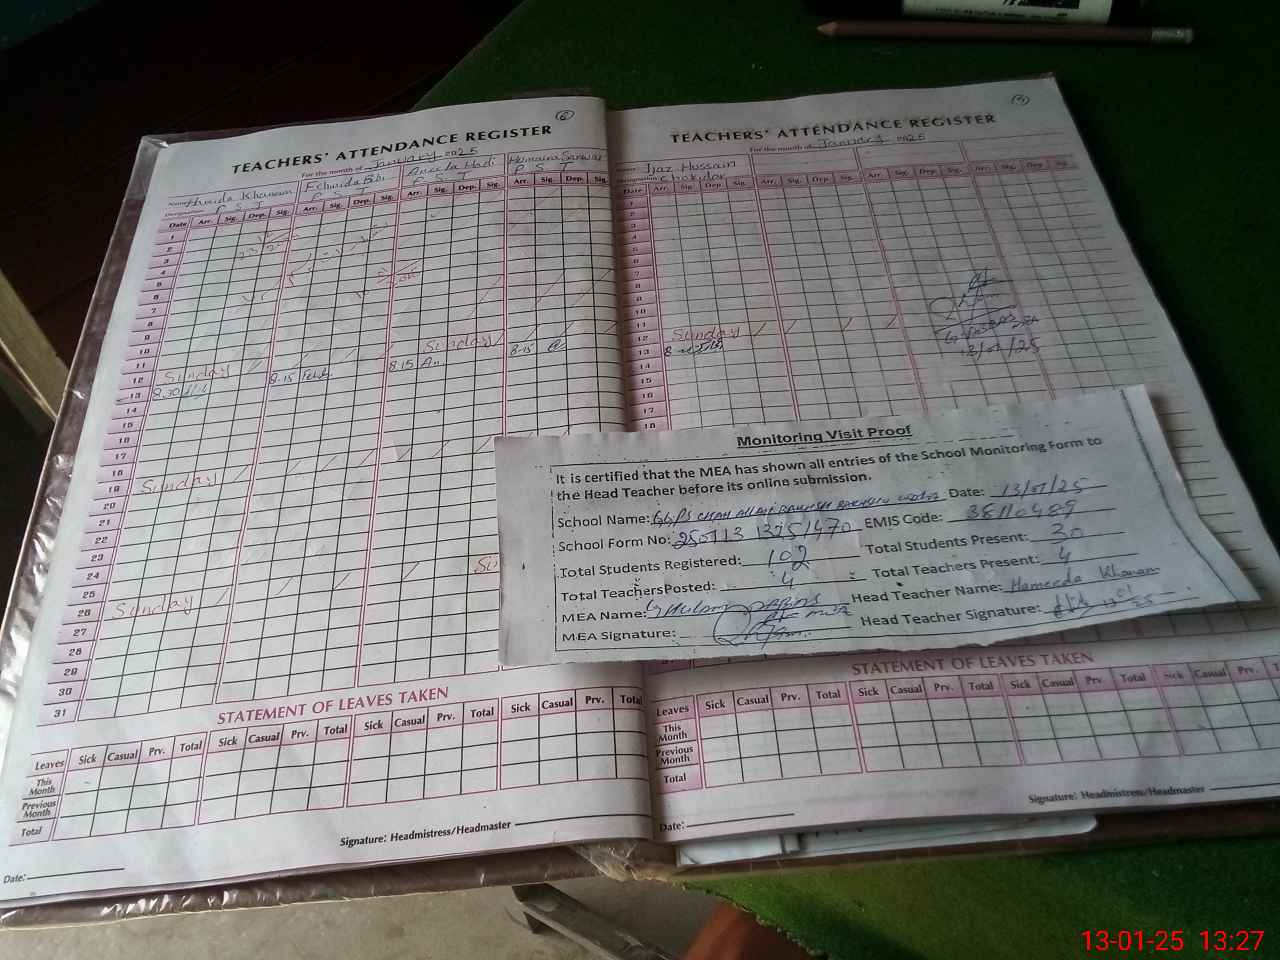 6
TEACHERS' ATTENDANCE REGISTER
For the month of January 2025
Name Hamida Khanam Fehmida Bibi Aneela Hadi Humaira Sarwar
Designation P S T P T T P. S T
Date Arr. Sig. Dep. Sig. Arr. Sig. Dep. Sig. Arr. Sig. Dep. Sig. Arr. Sig. Dep. Sig.
1
2
3
4
5
6
7
8
9
10
11
12 Sunday Sunday
13 8.30 8.15 8.15 8.15
14
15
16
17
18
19 Sunday
20
21
22
23
24
25
26 Sunday Su
27
28
29
30
31
STATEMENT OF LEAVES TAKEN
Leaves Sick Casual Prv. Total Sick Casual Prv. Total Sick Casual Prv. Total Sick Casual Prv. Total
This Month
Previous Month
Total
Signature: Headmistress/Headmaster
Date:
7
TEACHERS' ATTENDANCE REGISTER
For the month of January 2025
Ijaz Hussain
Chokidar
Date Arr. Sig. Dep. Sig. Arr. Sig. Dep. Sig. Arr. Sig. Dep. Sig. Arr. Sig. Dep. Sig.
1
2
3
4
5
6
7
8
9
10
11
12 Sunday
13 8
14
15
16
17
18
13/01/25
Monitoring Visit Proof
It is certified that the MEA has shown all entries of the School Monitoring Form to
the Head Teacher before its online submission.
School Name: GGPS CHAH ALLAH BAKHSH Date: 13/01/25
School Form No: 250113 13251470 EMIS Code: 38110489
Total Students Registered: 102 Total Students Present: 30
Total TeachersPosted: 4 Total Teachers Present: 4
MEA Name: Head Teacher Name: Hameeda Khanam
MEA Signature: Head Teacher Signature:
STATEMENT OF LEAVES TAKEN
Leaves Sick Casual Prv. Total Sick Casual Prv. Total Sick Casual Prv. Total Sick Casual Prv.
This Month
Previous Month
Total
Signature: Headmistress/Headmaster
Date:
13-01-25 13:27